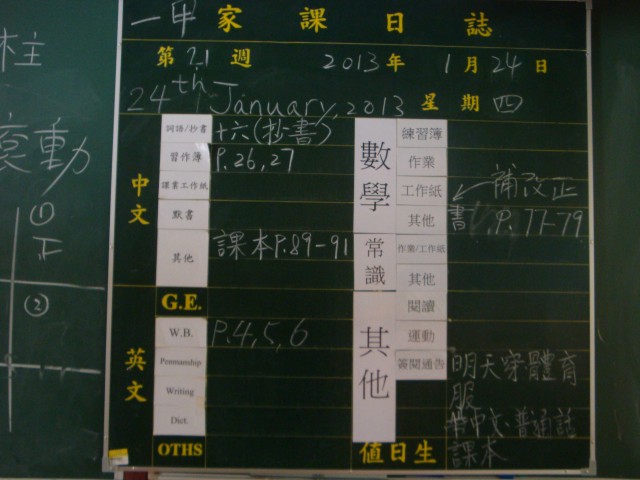 柱
衮動
①
下
②
一甲 家課日誌
第21週 2013年1月24日
24th January, 2013 星期四
中文
詞語/抄書 十六(抄書)
習作簿 P.26,27
課業工作紙
默書
其他 課本P.89-91
英文
G.E.
W.B. P.4,5,6
Penmanship
Writing
Dict.
OTHS
數學
練習簿
作業
工作紙 補改正
其他 書 P.77-79
常識
作業/工作紙
其他
其他
閱讀
運動
簽閱通告 明天穿體育
服
帶中文,普通話
課本
值日生